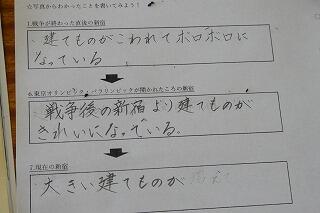 ☆写真からわかったことを書いてみよう！
1.戦争が終わった直後の新宿
・建てものがこわれてボロボロに
なっている
6.東京オリンピック・パラリンピックが開かれたころの新宿
・戦争後の新宿より建てものが
きれいになっている。
7.現在の新宿
・大きい建てものが